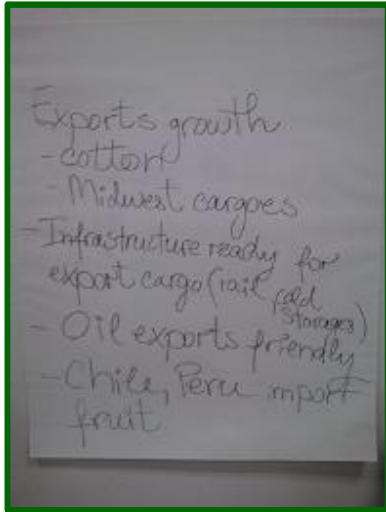 Exports growth
- cotton
- Midwest cargoes
- Infrastructure ready for
export cargo (rail, cold
storages)
- Oil exports friendly
- Chile, Peru import
fruit